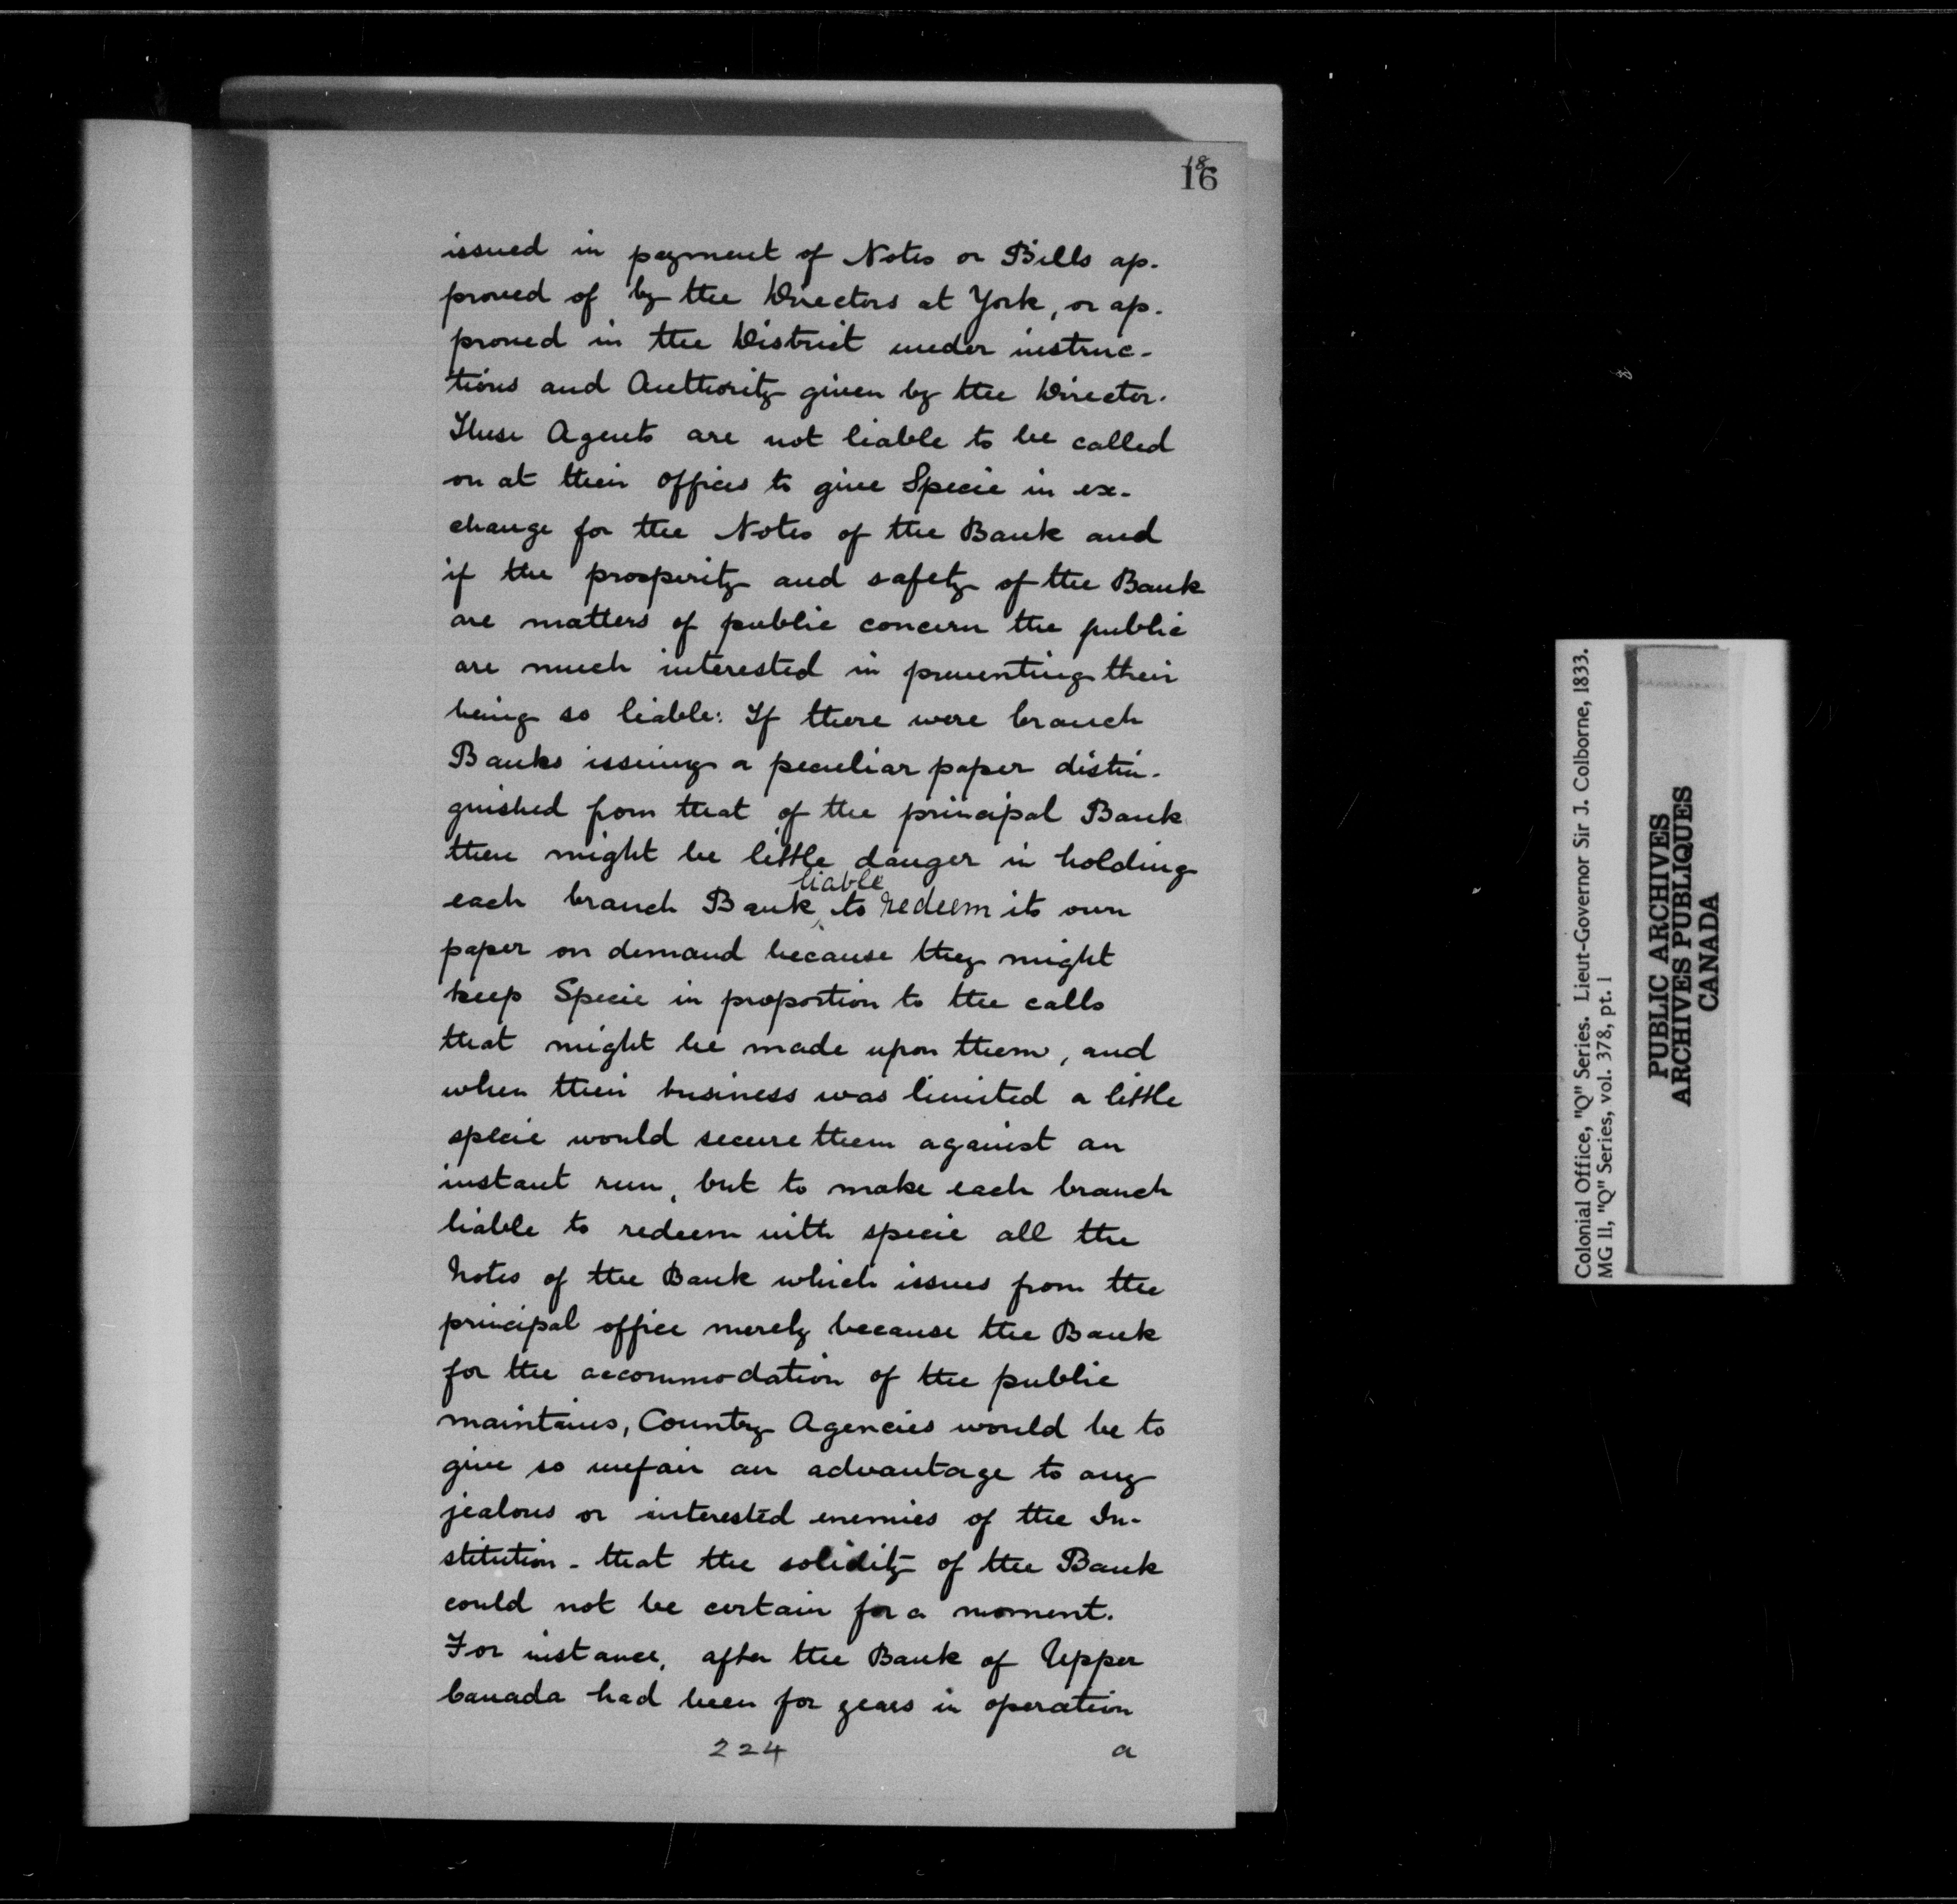 18
16
issued in payment of Notes or Bills ap-
proved of by the Directors at York, or ap-
proved in the District under instruc-
tions and Authority given by the Director.
These Agents are not liable to be called
on at their offices to give Specie in ex-
change for the Notes of the Bank and
if the prosperity and safety of the Bank
are matters of public concern the public
are much interested in preventing their
being so liable: If there were branch
Banks issuing a peculiar paper distin-
guished from that of the principal Bank
there might be little danger in holding
liable
each branch Bank ‸ to redeem its own
paper on demand because they might
keep Specie in proportion to the calls
that might be made upon them, and
when their business was limited a little
specie would secure them against an
instant run, but to make each branch
liable to redeem with specie all the
Notes of the Bank which issues from the
principal office merely because the Bank
for the accommodation of the public
maintains, Country Agencies would be to
give so unfair an advantage to any
jealous or interested enemies of the In-
stitution - that the solidity of the Bank
could not be certain for a moment.
For instance, after the Bank of Upper
Canada had been for years in operation
224 a
Colonial Office, "Q" Series. Lieut-Governor Sir J. Colborne, 1833.
MG 11, "Q" Series, vol. 378, pt. 1
PUBLIC ARCHIVES
ARCHIVES PUBLIQUES
CANADA